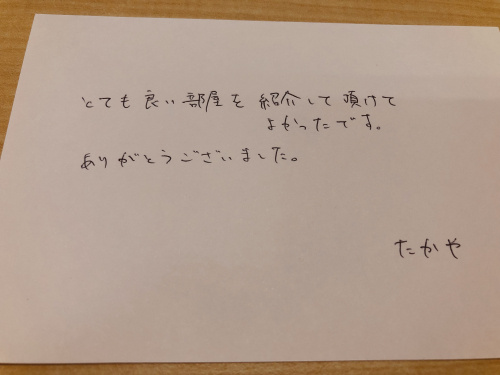 とても良い部屋を紹介して頂けて
よかったです。
ありがとうございました。
たかや